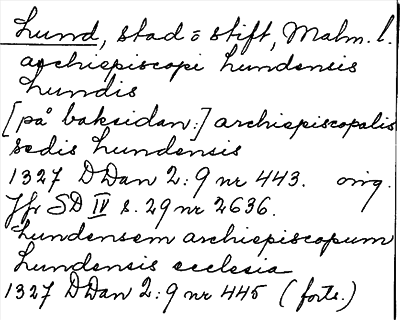 Lund, stad = stift, Malm. l.
archiepiscopi Lundensis
Lundis
[på baksidan:] archiepiscopalis
sedis Lundensis
1327 DDan 2:9 nr 443. orig.
Jfr SD IV s. 29 nr 2636.
Lundensem archiepiscopum
Lundensis ecclesia
1327 DDan 2:9 nr 445 (forts.)